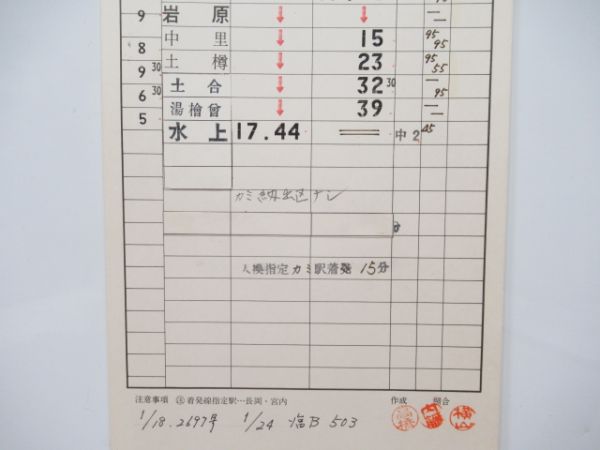 9 岩原 ↓ ↓ ＝
8 中里 ↓ 15 95 95
9 30 土樽 ↓ 23 95 55
6 30 土合 ↓ 32 30 95
5 湯檜曾 ↓ 39 ＝
水上 17.44 ＝ 中2 45
分
入換指定カミ駅着発 15分
注意事項 着発線指定駅…長岡・宮内 作成 照合
1/18.2697号 1/24 B 503